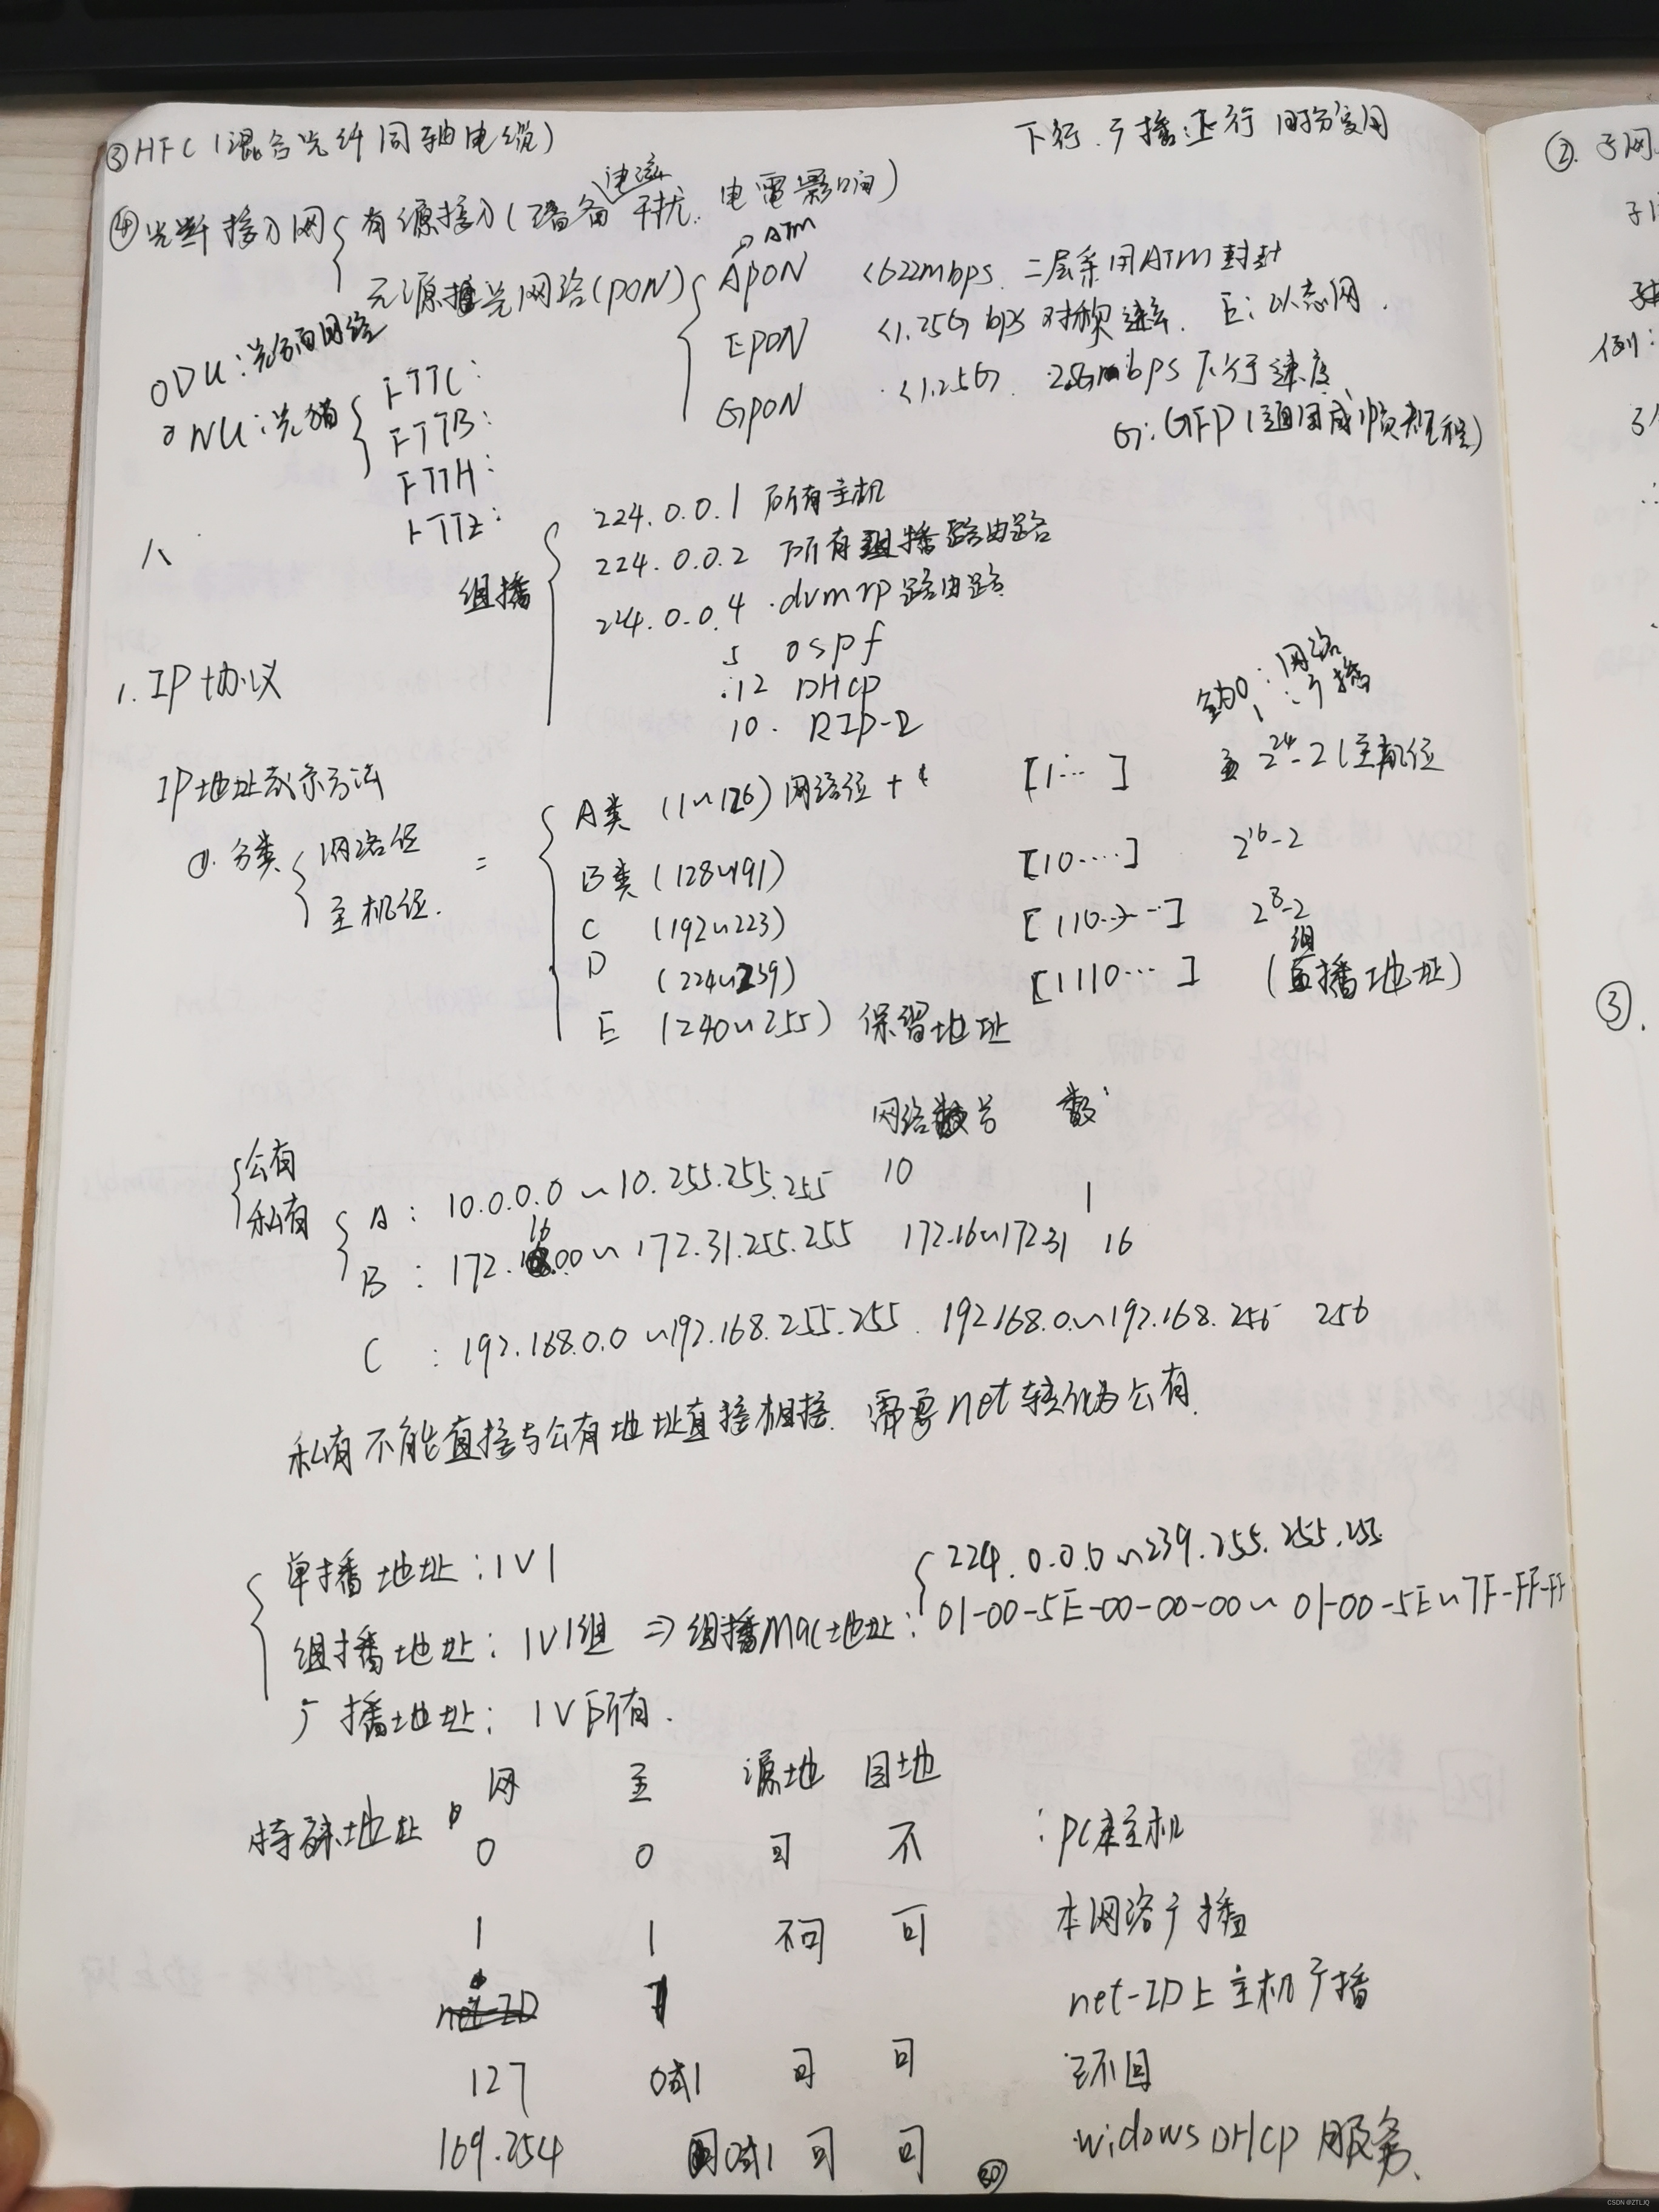 ③HFC(混合光纤同轴电缆) 下行.广播;上行 时分复用
电源
④光纤接入网{有源接入(设备 干扰. 电雷影响)
ATM
无源光网络(PON){APON <622mbps. 二层采用ATM封封
EPON <1.25G bps 对称速率. E:以态网.
GPON <1.25G. bps下行速度
G:GFP(通用成帧规程)
ODU:光分
ONU:光猫{FTTC:
FTTB:
FTTH:
FTTZ:
八
组播{224.0.0.1 所有主机
224.0.0.2 所有组播路由路
224.0.0.4 .dvmrp路由路
5 ospf
.12 DHCP
10. RIP-2
1. IP协议
全为0:网络
1:广播
IP地址表示方法
①.分类{网络位
主机位. =
{A类 (1~126)网络位+ [1...] 2^24-2(主机位
B类 (128~191) [10....] 2^16-2
C (192~223) [110...] 2^8-2
D (224~239) [1110...] (组播地址)
E (240~255) 保留地址
网络号 数
{公有
私有{A: 10.0.0.0~10.255.255.255 10 1
B: 172.16.0.0~172.31.255.255 172.16~172.31 16
C: 192.168.0.0~192.168.255.255. 192.168.0.~192.168.255 256
私有不能直接与公有地址直接相接. 需要net转化为公有.
{单播地址:1V1
组播地址:1V1组 ⇒组播Mac地址:{224.0.0.0~239.255.255.255
01-00-5E-00-00-00~01-00-5E~7F-FF-FF
广播地址:1V所有.
网 主 源地 目地
特殊地址
0 0 可 不 :PC本主机
1 1 不可 可 本网络广播
net-ID 1 net-ID上主机广播
127 0或1 可 可 环回
169.254 0或1 可 可 widows DHCP服务.
②.子网
例:
③.
CSDN @ZTLJQ